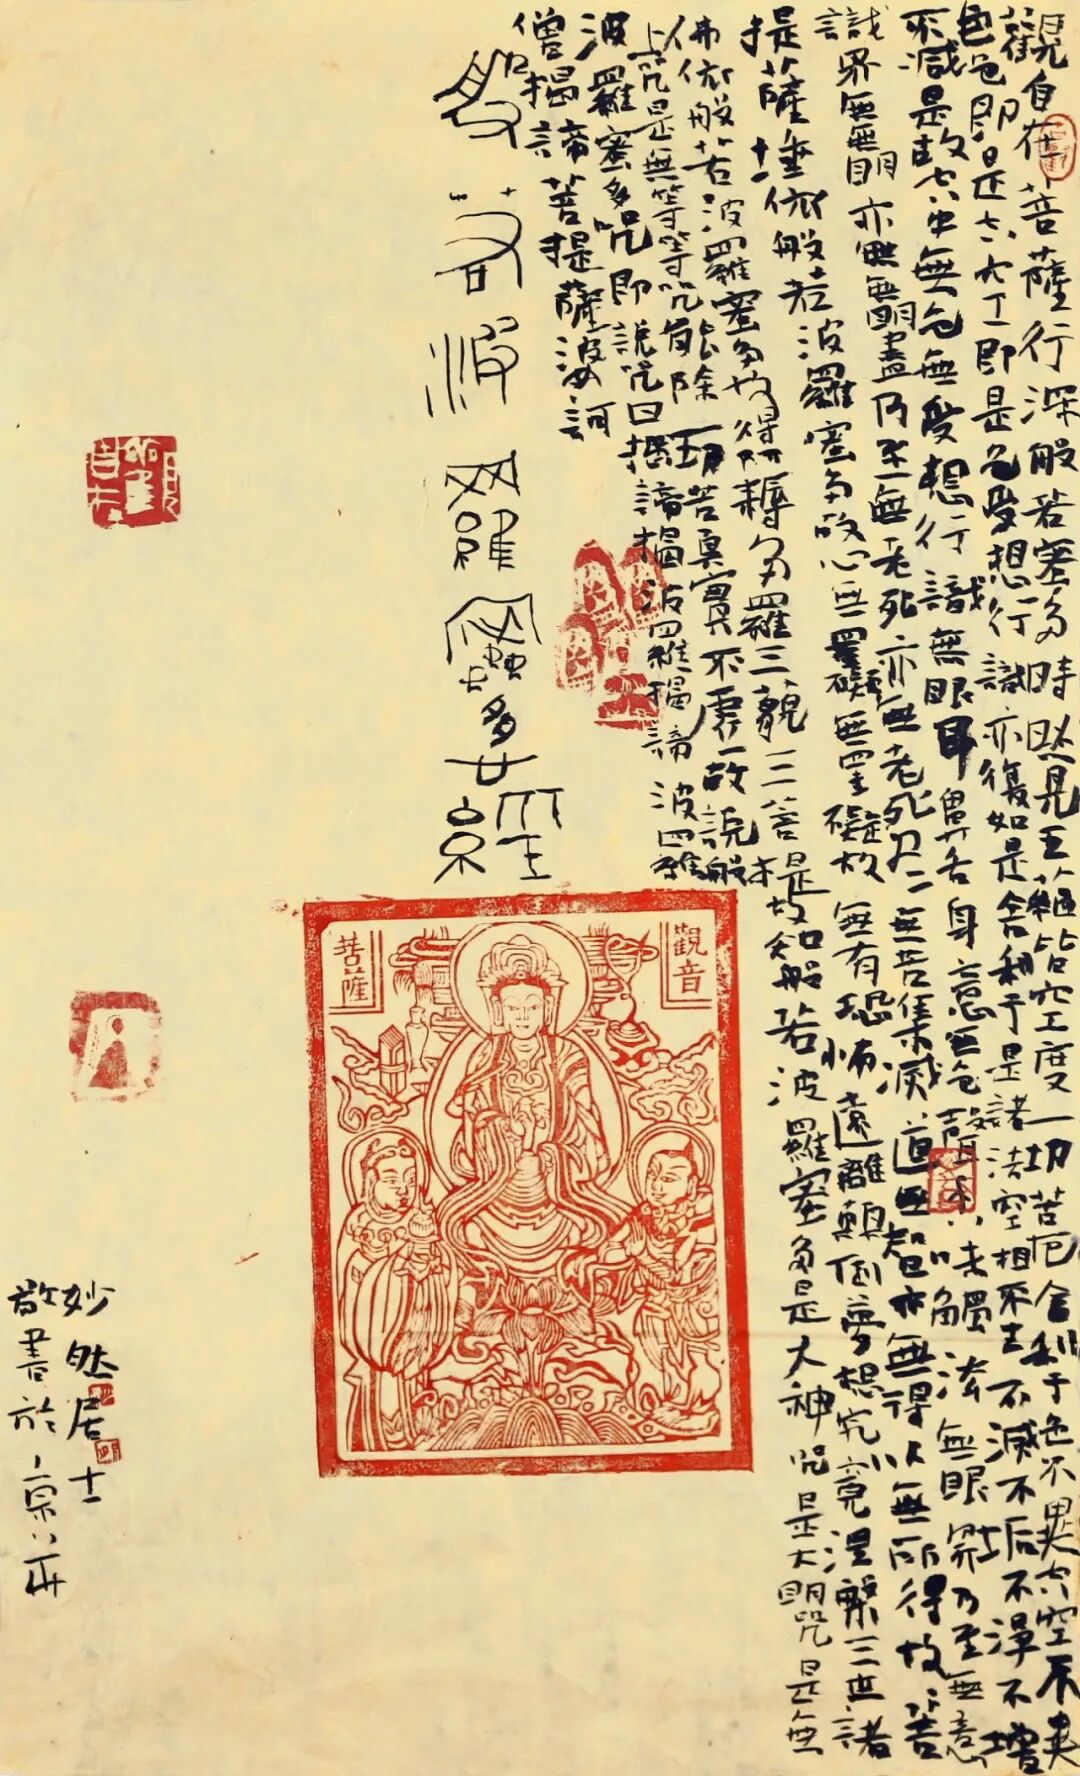 觀自在菩薩行深般若蜜多時照見五蘊皆空度一切苦厄舍利子色不異空空不異
色色即是空空即是色受想行識亦復如是舍利子是諸法空相不生不滅不垢不淨不增
不減是故空中無色無受想行識無眼耳鼻舌身意無色聲香味觸法無眼界乃至無意
識界無無明亦無無明盡乃至無老死亦無老死盡無苦集滅道無智亦無得以無所得故菩
提薩埵依般若波羅蜜多故心無罣礙無罣礙故無有恐怖遠離顛倒夢想究竟涅槃三世諸
佛依般若波羅蜜多故得阿耨多羅三藐三菩提故知般若波羅蜜多是大神咒是大明咒是無
上咒是無等等咒能除一切苦真實不虛故說般
波羅蜜多咒即說咒曰揭諦揭諦波羅揭諦波羅
僧揭諦菩提薩婆訶
般若波羅蜜多心經
觀音
菩薩
妙然居士
敬書於京華